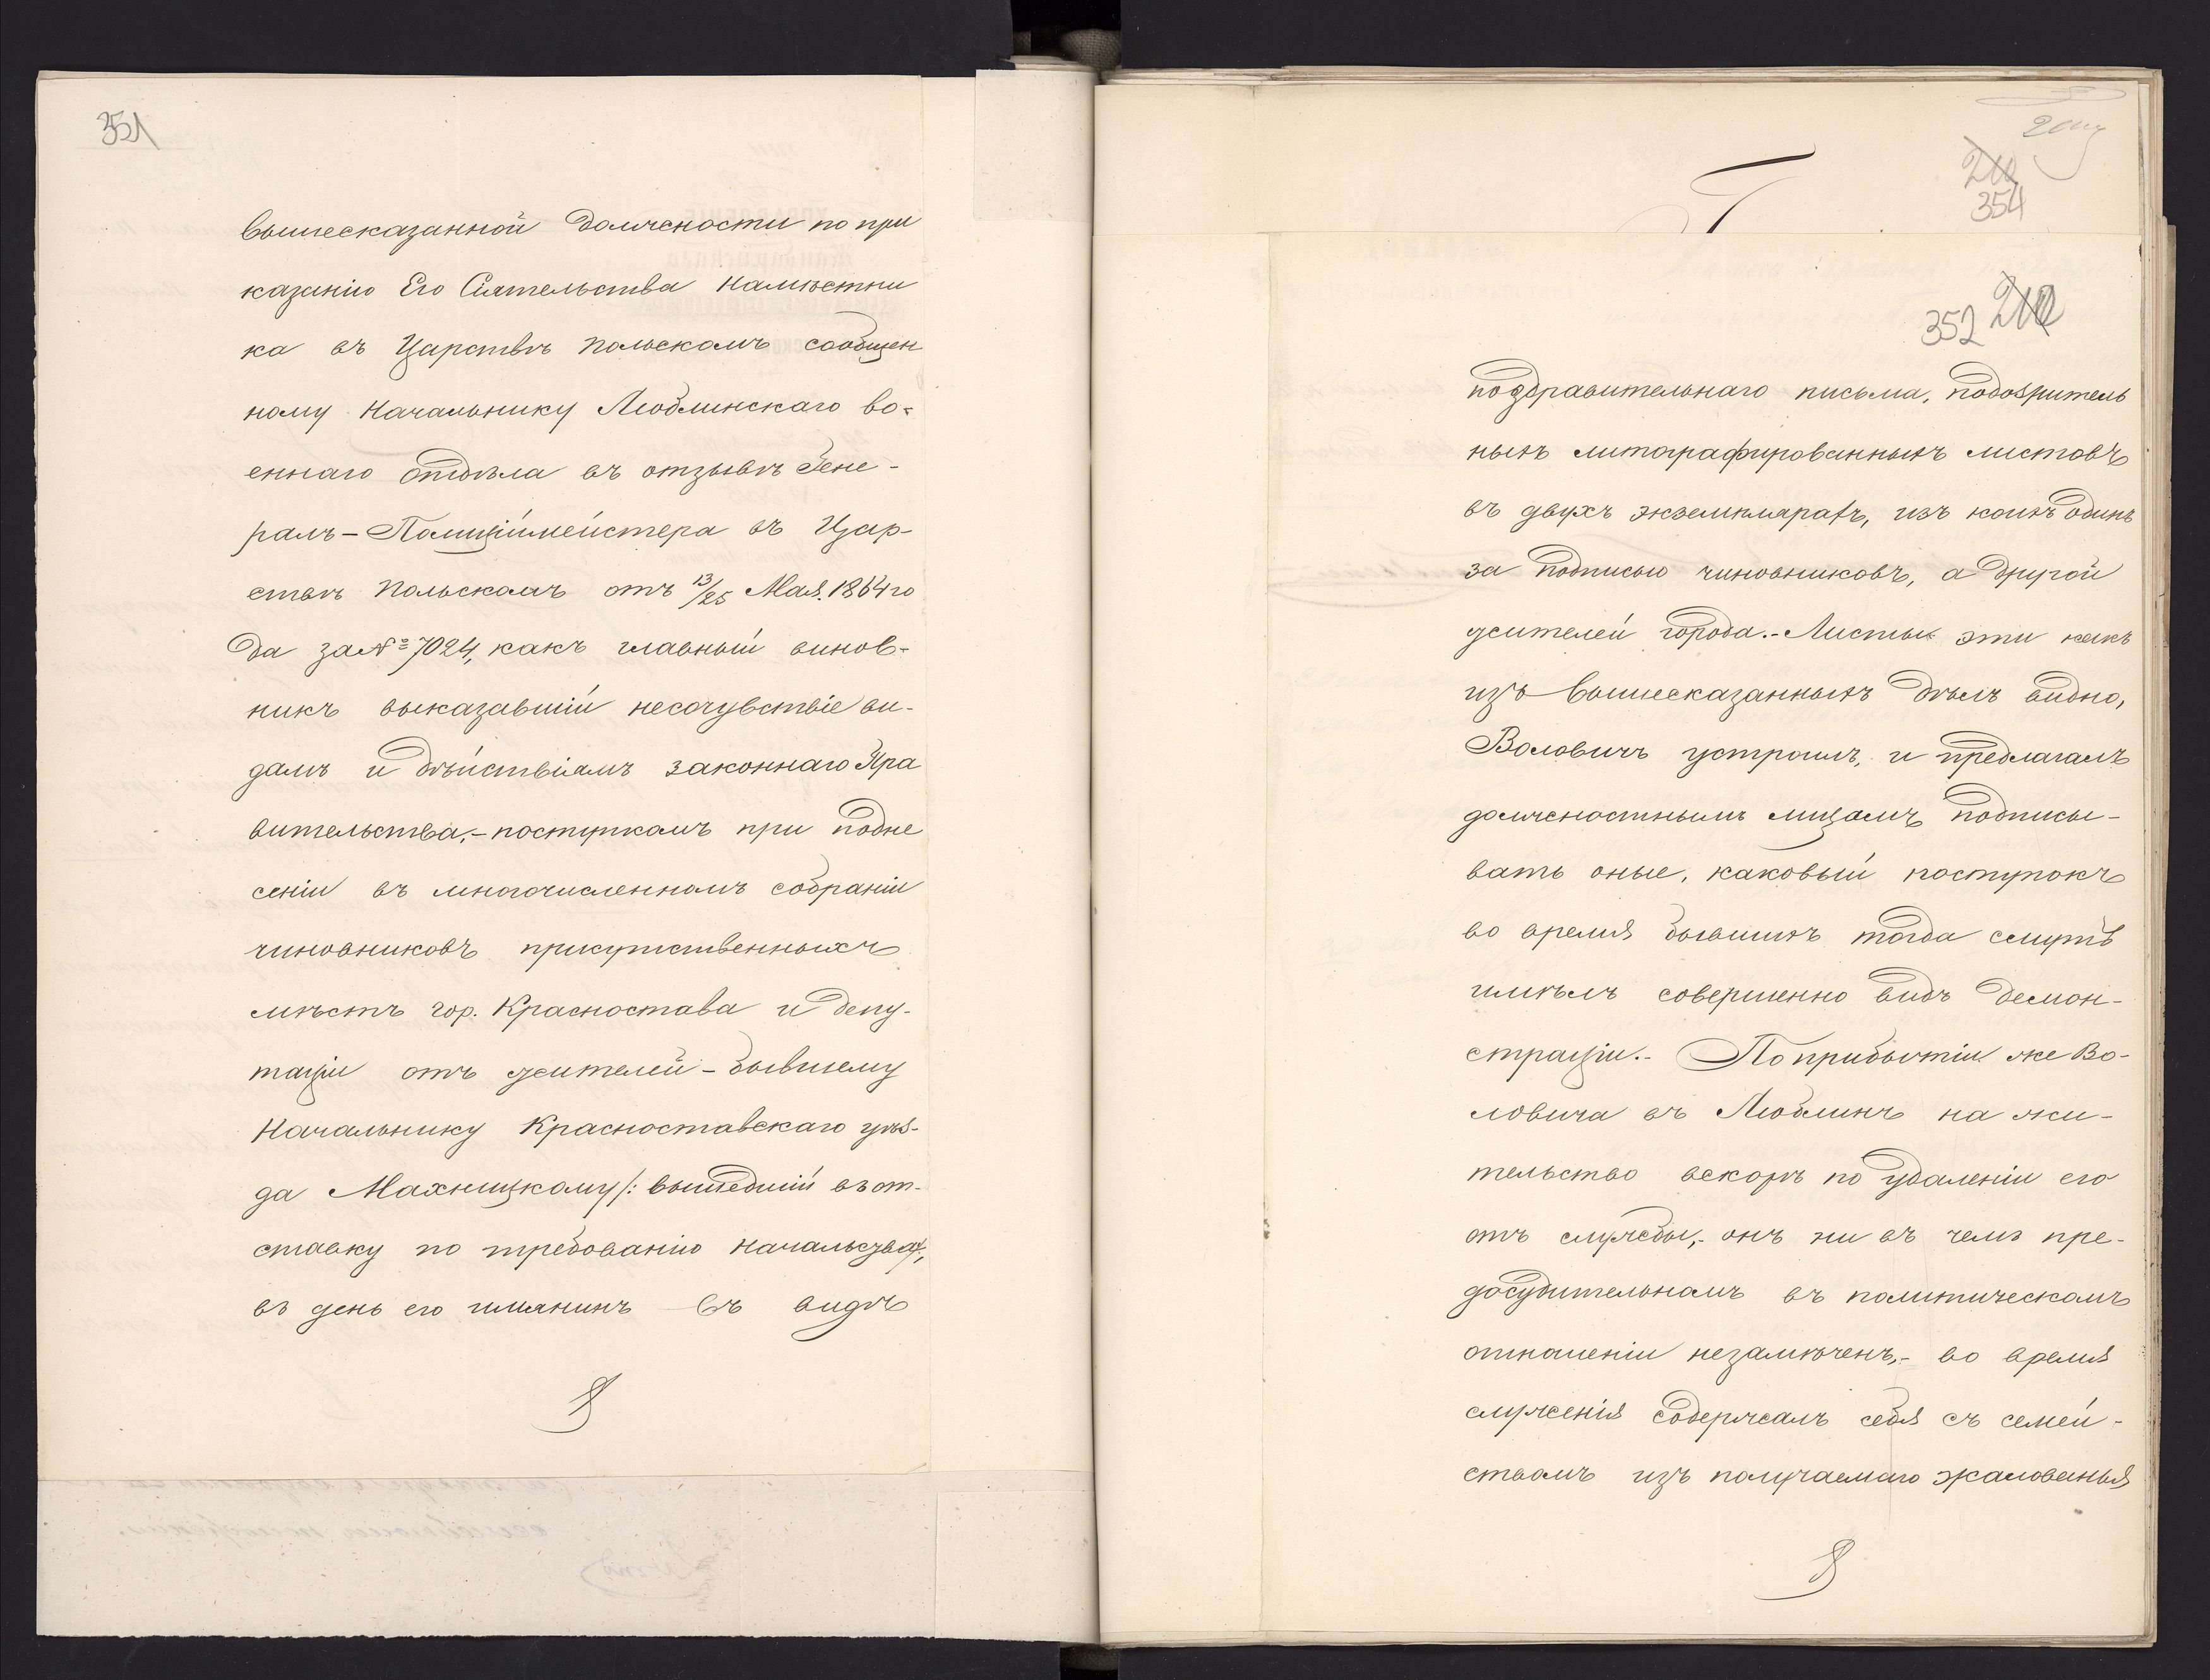 351
вышесказанной должности по при
казанію Его Сіятельства Намѣстни
ка въ Царствѣ Польскомъ сообщен
ному Начальнику Люблинскаго во-
еннаго отдѣла въ отзывѣ Гене-
ралъ-Полиціймейстера въ Цар-
ствѣ Польскомъ отъ 13/25 Мая 1864 го
да за № 7024, какъ главный винов-
никъ выказавшій несочувствіе ви-
дамъ и дѣйствіямъ законнаго Пра
вительства,- поступкомъ при подне
сеніи въ многочисленномъ собраніи
чиновниковъ присутственныхъ
мѣстъ гор. Красностава и депу-
таціи отъ жителей - бывшему
Начальнику Красноставскаго уѣз-
да Махницкому /: вышедшій въ от-
ставку по требованію Начальства/,
въ день его имянинъ въ видѣ
354
352
210
поздравительнаго письма, подозритель
ныхъ литографированныхъ листовъ
въ двухъ экземплярахъ, изъ коихъ одинъ
за подписью чиновниковъ, а другой
жителей города.- Листы эти какъ
изъ вышесказанныхъ дѣлъ видно,
Воловичъ устроилъ, и предлагалъ
должностнымъ лицамъ подписы-
вать оные, каковый поступокъ
во время бывшихъ тогда смутъ
имѣлъ совершенно видъ демон-
страціи.- По прибытіи же Во-
ловича въ Люблинъ на жи-
тельство вскорѣ по удаленіи его
отъ службы,- онъ ни въ чемъ пре-
досудительномъ въ политическомъ
отношеніи незамѣченъ,- во время
служенія содержалъ себя съ семей-
ствомъ изъ получаемаго жалованья